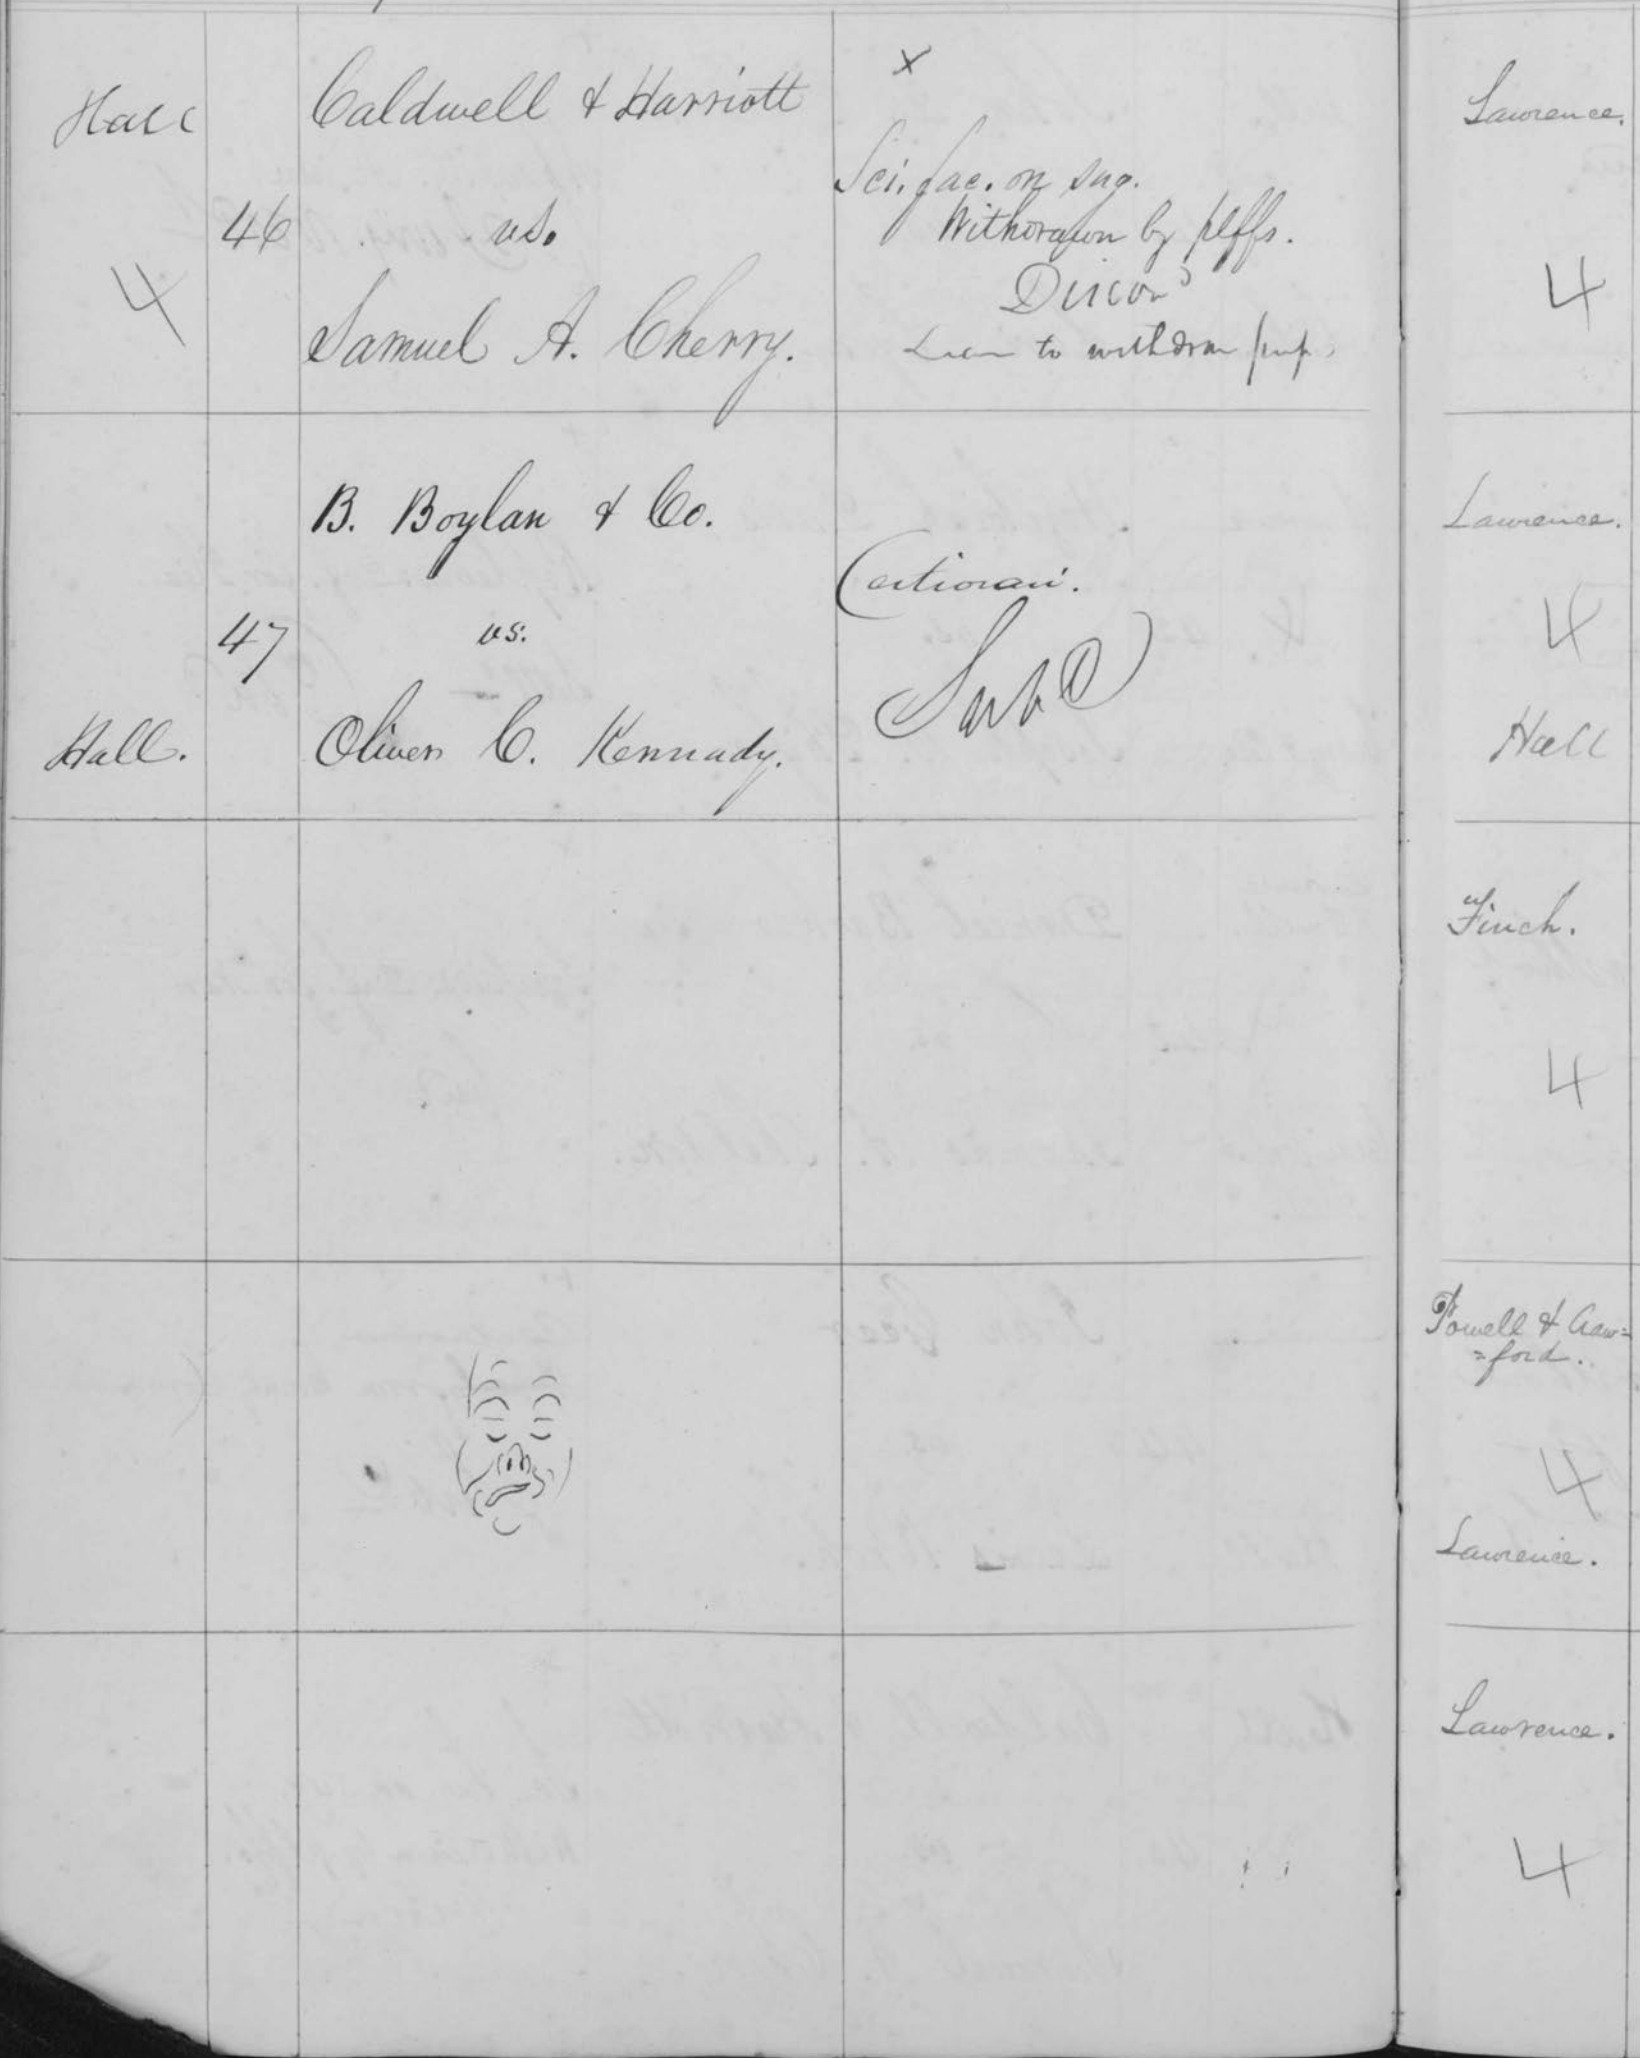 Hall
4
46
Caldwell & Harriott
vs.
Samuel A. Cherry.
x
Sci. fac. on sug.
Withdrawn by plffs.
Discon
to withdraw
B. Boylan & Co.
47
vs.
Hall.
Oliver C. Kennady.
Certiorari.
Lawrence.
4
Lawrence.
4
Hall
Finch.
4
Powell & Craw=
=ford.
4
Lawrence.
Lawrence.
4